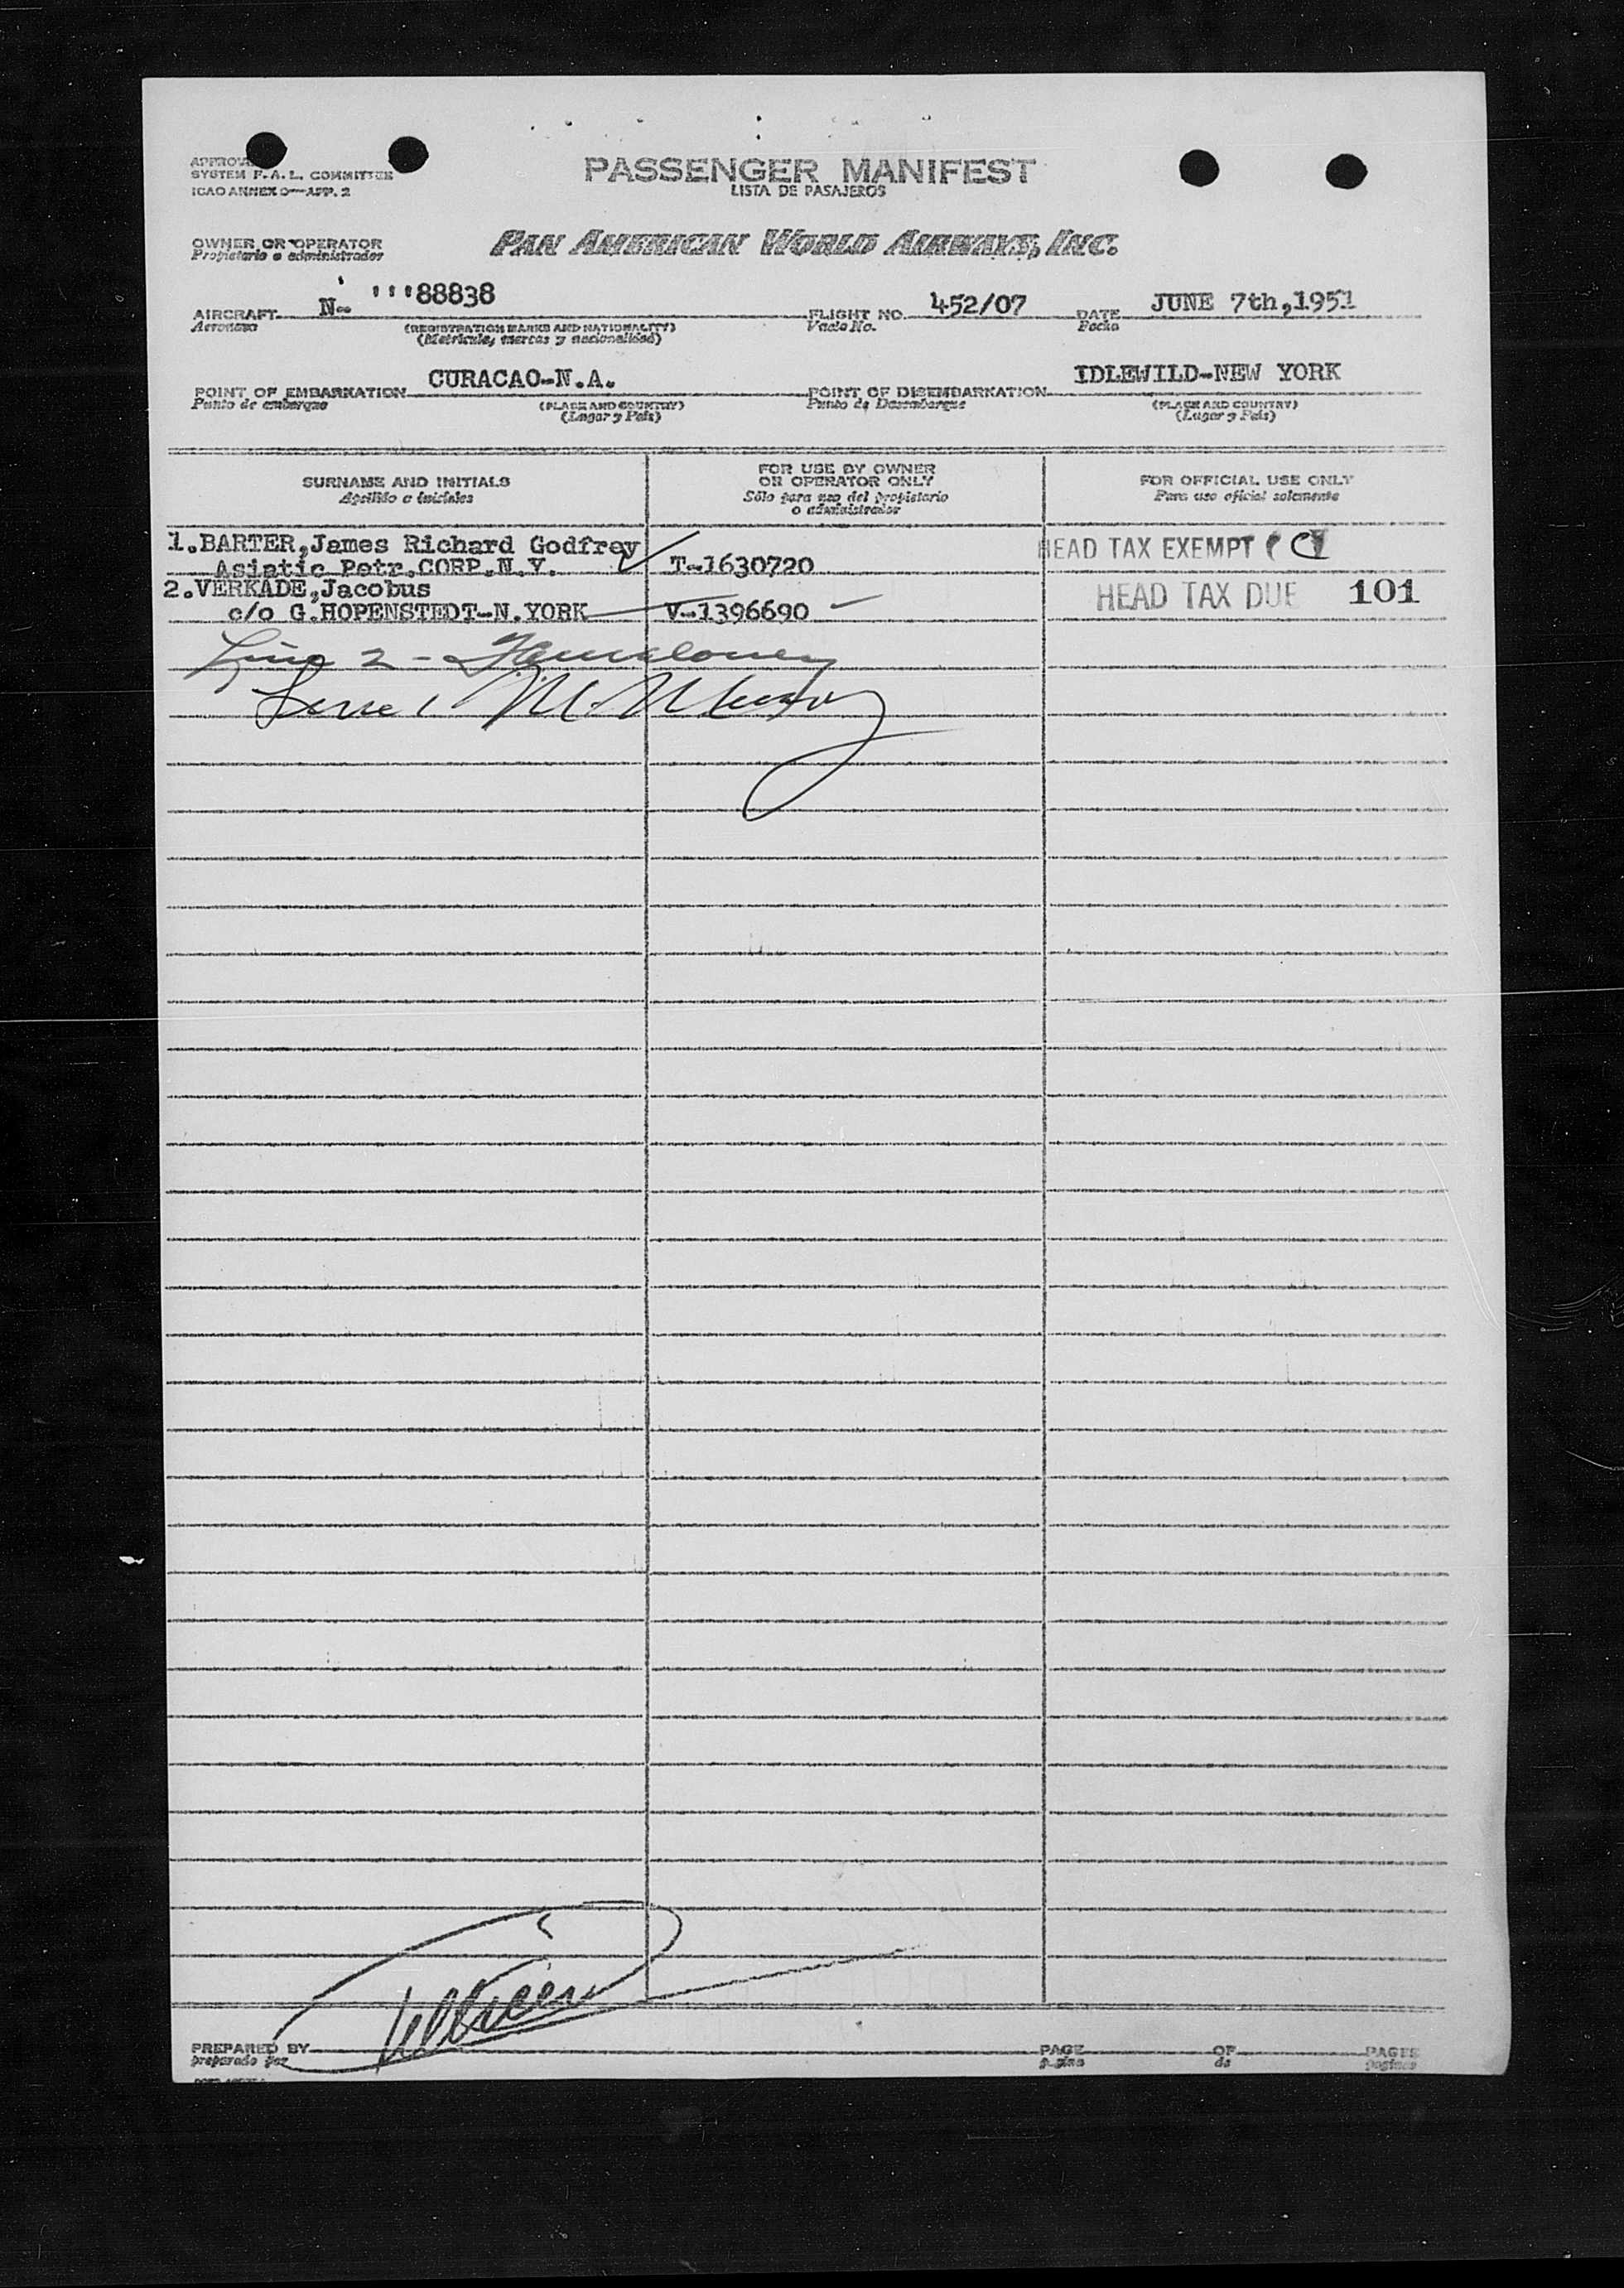 SYSTEM F.A.L. COMMITTEE
ICAO ANNEX 9—APP. 2
PASSENGER MANIFEST
LISTA DE PASAJEROS
OWNER OR OPERATOR
Propietario o administrador
PAN AMERICAN WORLD AIRWAYS, INC.
AIRCRAFT N- '''88838 FLIGHT NO. 452/07 DATE JUNE 7th,1951
Aeronave (REGISTRATION MARKS AND NATIONALITY) Vuelo No. Fecha
(Matricula, marcas y nacionalidad)
POINT OF EMBARKATION CURACAO-N.A. POINT OF DISEMBARKATION IDLEWILD-NEW YORK
Punto de embarque (PLACE AND COUNTRY) Punto de Desembarque (PLACE AND COUNTRY)
(Lugar y País) (Lugar y País)
SURNAME AND INITIALS
Apellido e iniciales
FOR USE BY OWNER
OR OPERATOR ONLY
Sólo para uso del propietario
o administrador
FOR OFFICIAL USE ONLY
Para uso oficial solamente
1.BARTER,James Richard Godfrey HEAD TAX EXEMPT
Asiatic Petr.CORP.N.Y. T-1630720
2.VERKADE,Jacobus HEAD TAX DUE 101
c/o G.HOPENSTEDT-N.YORK V-1396690
Line 2 -
Line 1
PREPARED BY PAGE OF PAGES
preparado por página de páginas